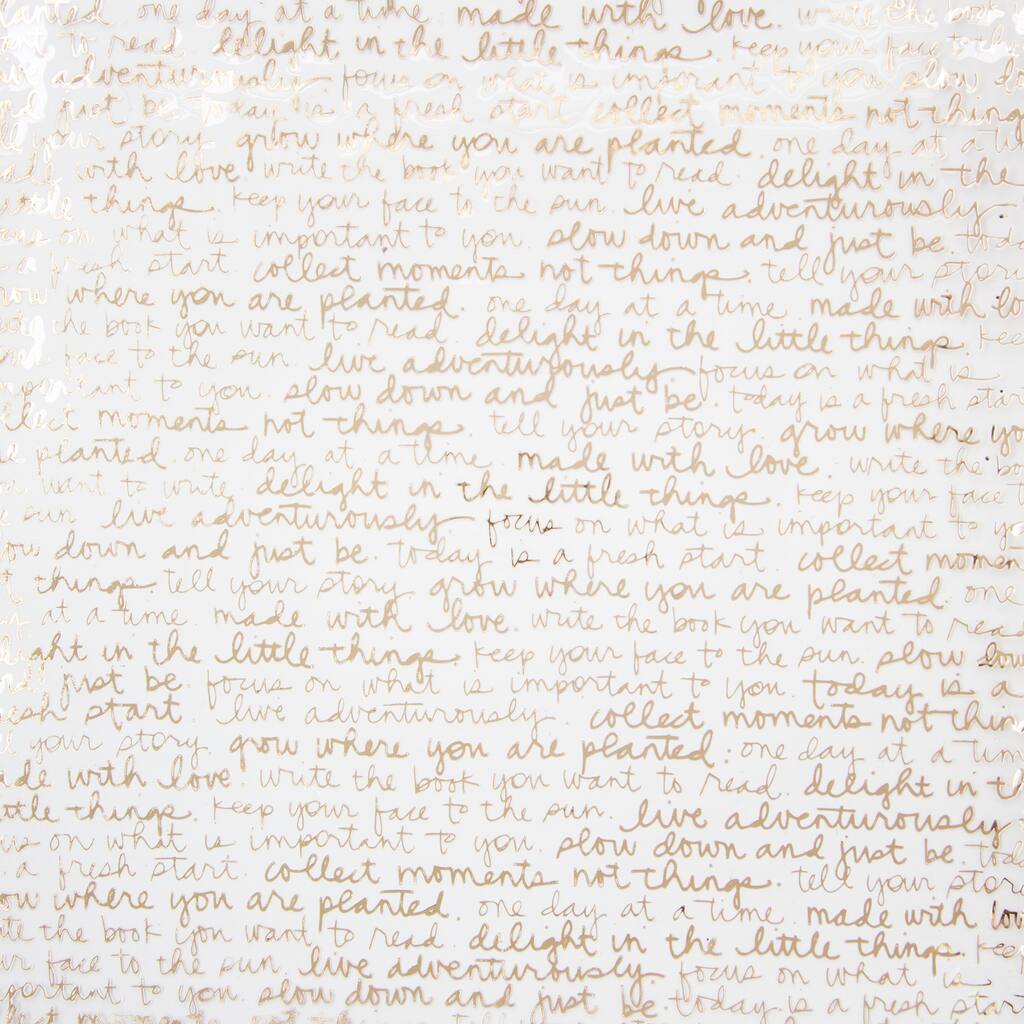 planted one day at a time made with love. write the book
want to read. delight in the little things. keep your face to the
live adventurously focus on what is imporant to you slow do
and just be. today is a fresh start collect moments not things
your story. grow where you are planted. one day at a tim
made with love write the book you want to read. delight in the
little things. keep your face to the sun. live adventurously.
focus on what is important to you. slow down and just be. toda
s a fresh start. collect moments not things. tell your story
row where you are planted. one day at a time. made with lo
write the book you want to read. delight in the little things. kee
face to the sun. live adventurously focus on what is
important to you. slow down and just be. today is a fresh star
llect moments not things. tell your story. grow where yo
e planted. one day at a time. made with love. write the boo
want to write. delight in the little things. keep your face t
e sun live adventurously focus on what is important to y
ow down and just be. today is a fresh start. collect momen
t things. tell your story grow where you are planted. one
at a time. made with love. write the book you want to read
light in the little things. keep your face to the sun. slow dow
just be. focus on what is important to you. today is a
esh start. live adventurously. collect moments not thin
l your story. grow where you are planted. one day at a tim
de with love. write the book you want to read. delight in th
ttle things. keep your face to the sun. live adventurously
us on what is important to you. slow down and just be. toda
a fresh start. collect moments not things. tell your stor
ow where you are planted. one day at a time. made with lov
ite the book you want to read. delight in the little things. keep
ur face to the sun. live adventurously. focus on what is
portant to you. slow down and just be. today is a fresh start
lect moments not things.